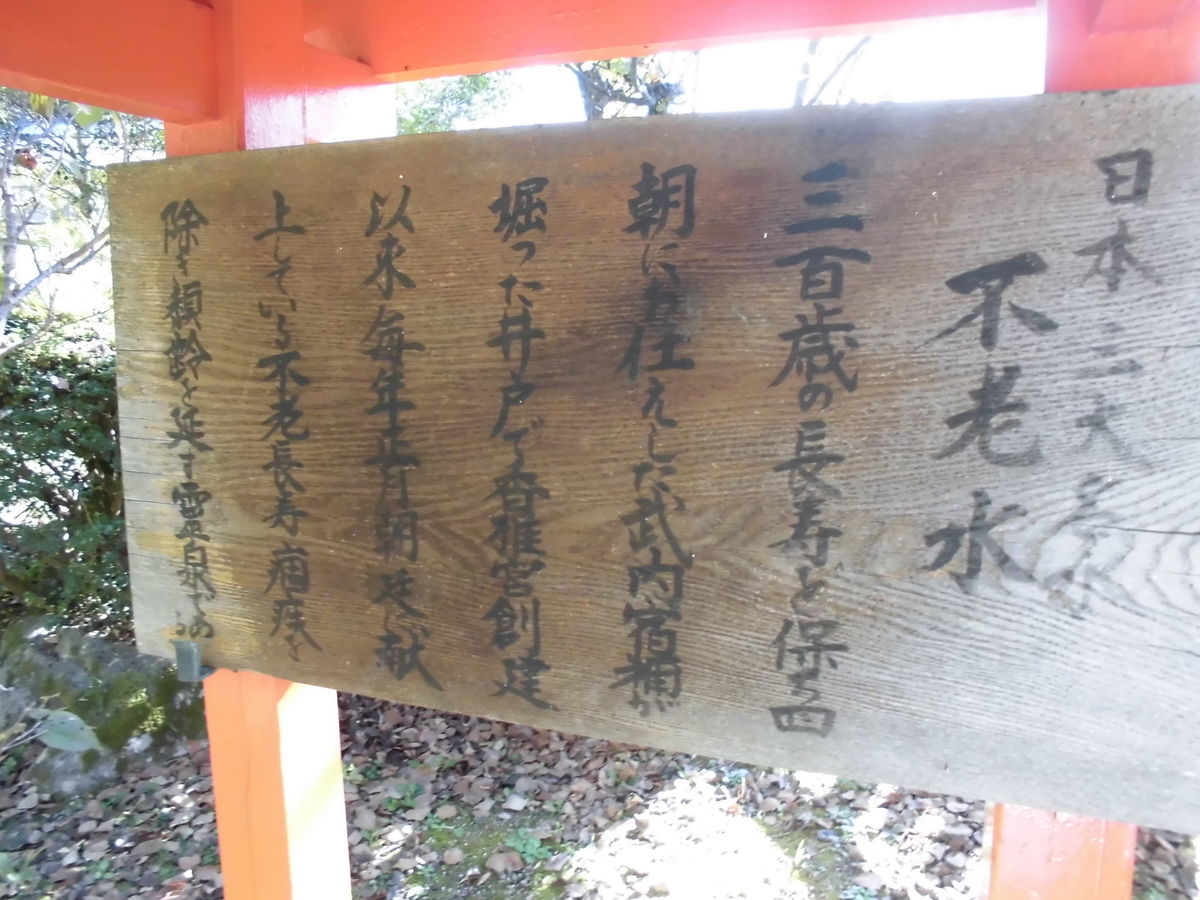 日本三大名水
不老水
三百歳の長寿を保る四
朝にお仕えした武内宿祢が
堀った井戸で香椎宮創建
以来毎年正月朝廷に献
上している不老長寿病疾を
除き頽齢を延す霊泉である